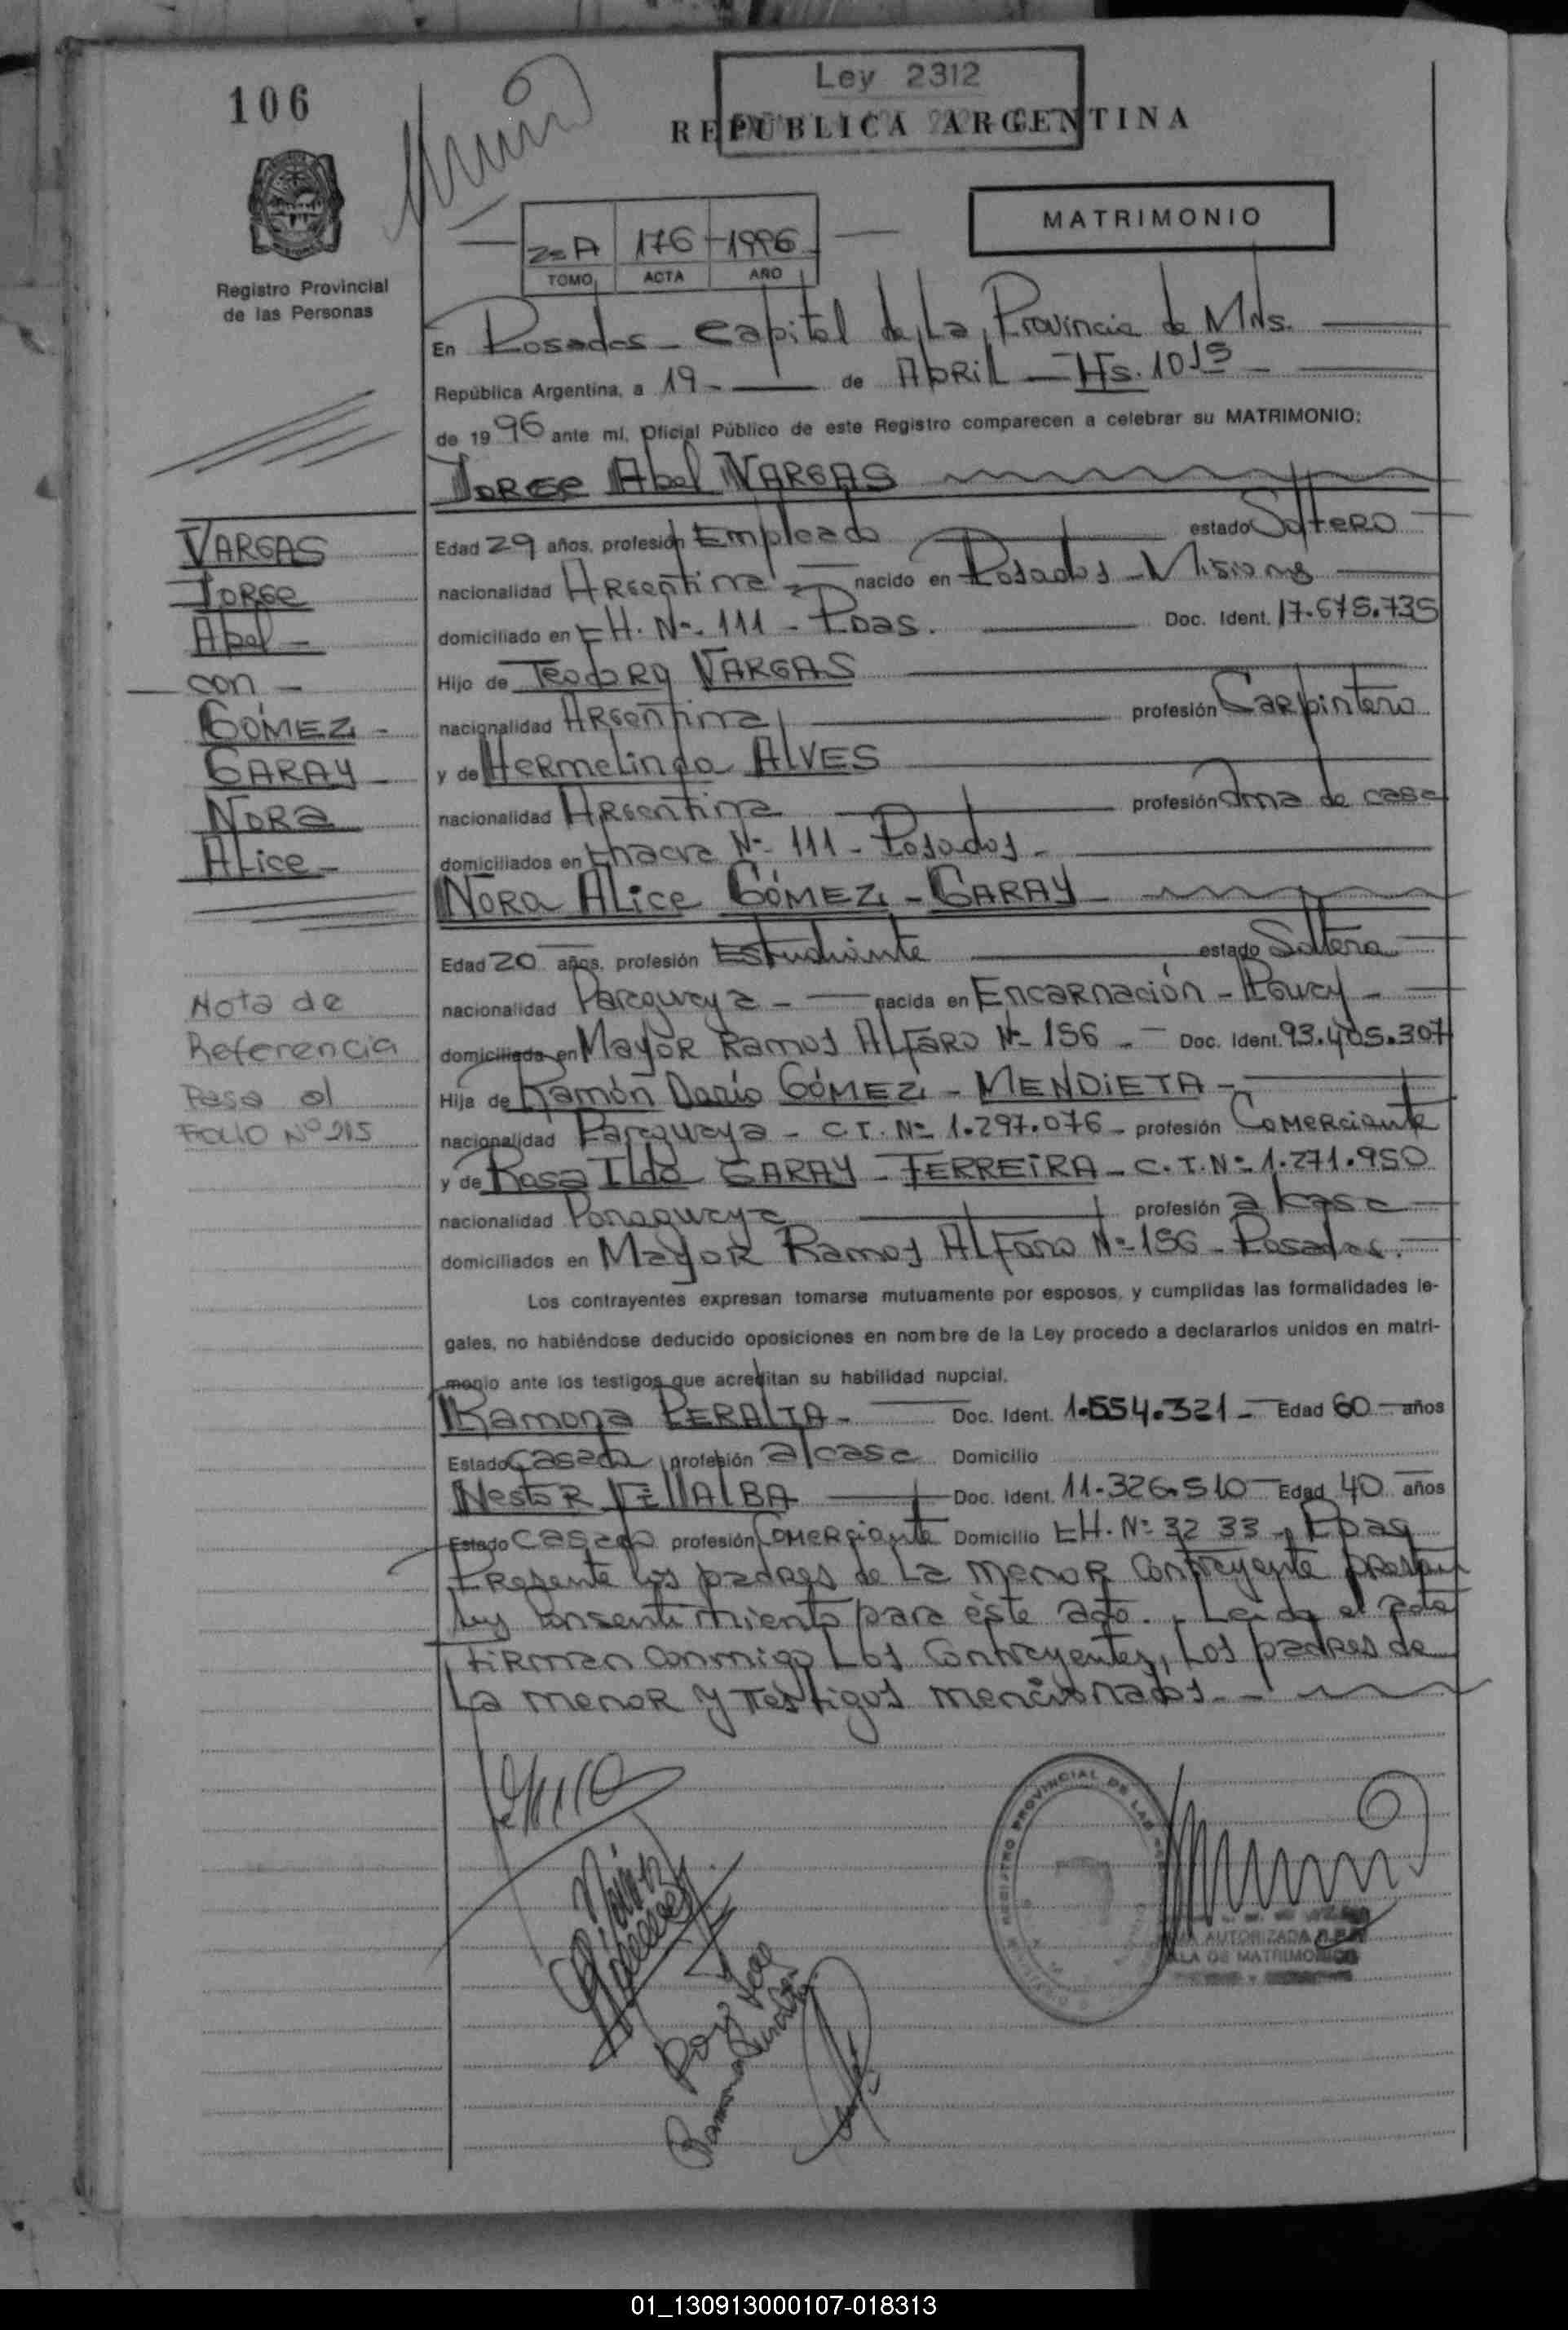 106
Ley 2312
REPUBLICA ARGENTINA
MATRIMONIO
2=A 176 1996
TOMO ACTA AÑO
Registro Provincial
de las Personas
En Posadas - Capital de La Provincia de Mns.
República Argentina, a 19 - de AbRiL - Hs. 1015
de 1996 ante mí, Oficial Público de este Registro comparecen a celebrar su MATRIMONIO:
JORGE Abel VARGAS
Edad 29 años, profesión Empleado estado Soltero
nacionalidad Argentina nacido en Posadas - Misiones
domiciliado en CH. Nº 111 - Pdas. Doc. Ident. 17.675.735
Hijo de Teodoro VARGAS
nacionalidad Argentina profesión Carpintero
y de Hermelinda ALVES
nacionalidad Argentina profesión Ama de casa
domiciliados en Chacra Nº 111 - Posadas -
NORA ALice GÓMEZ - GARAY
Edad 20 años, profesión Estudiante estado Soltera
nacionalidad Paraguaya - nacida en Encarnación - Pguay -
domiciliada en Mayor Ramos ALFARO Nº 156 - Doc. Ident. 93.405.307
Hija de Ramón Darío GÓMEZ - MENDIETA -
nacionalidad Paraguaya - C.I. Nº 1.297.076 - profesión Comerciante
y de Rosa Ilda GARAY - FERREIRA - C.I. Nº 1.271.950
nacionalidad Paraguaya profesión a/casa
domiciliados en Mayor Ramos ALFaro Nº 156 - Posadas.
Los contrayentes expresan tomarse mutuamente por esposos, y cumplidas las formalidades le-
gales, no habiéndose deducido oposiciones en nombre de la Ley procedo a declararlos unidos en matri-
monio ante los testigos que acreditan su habilidad nupcial.
Ramona PERALTA - Doc. Ident. 1.554.321 - Edad 60 años
Estado Casada profesión a/casa Domicilio
Nestor VillALBA Doc. Ident. 11.326.510 Edad 40 años
Estado Casado profesión Comerciante Domicilio CH. Nº 32 33 - Pdas
Presente los padres de La menor contrayente prestan
su consentimiento para éste acto. - Leida el acta
Firman conmigo Los Contrayentes, Los padres de
La menor y Testigos mencionados. -
VARGAS
JORGE
Abel -
con -
GÓMEZ -
GARAY
NORA
ALice -
Nota de
Referencia
Pasa al
FOLIO Nº 215
REGISTRO PROVINCIAL DE LAS
AUTORIZADA
DE MATRIMONIOS
01_130913000107-018313